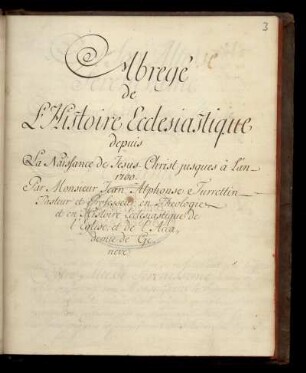 3
Abregé
de
L'Histoire Ecclesiastique
depuis
La Naissance de Jesus Christ jusques à l'an
1700.
Par Monsieur Jean Alphonse Turrettin
Pasteur et Professeur en Theologie
et en Histoire Ecclesiastique de
l'Eglise et de l'Aca
demie de Ge
neve